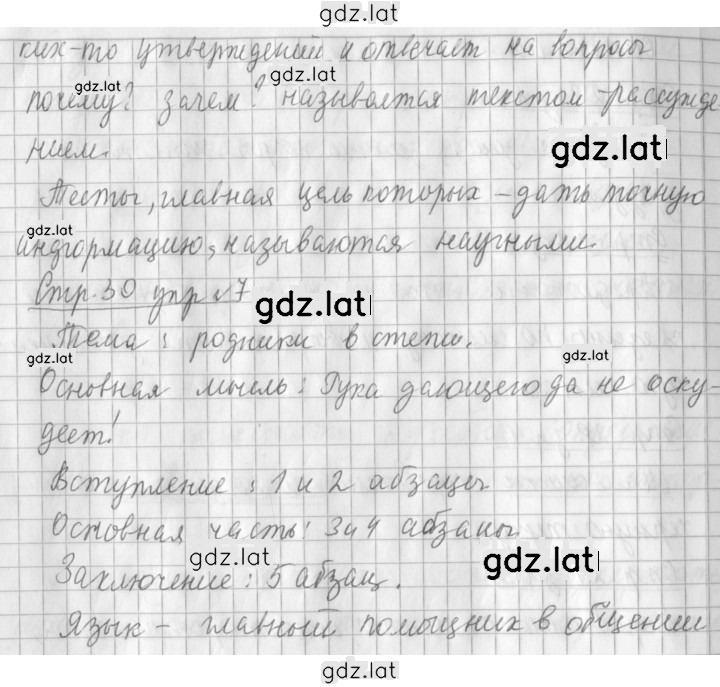 gdz.lat
ких-то утверждений и отвечает на вопросы
gdz.lat gdz.lat
почему? зачем? называется текстом-рассужде
нием. gdz.lat
Тесты, главная цель которых – дать точную
gdz.lat gdz.lat
информацию, называются научными.
Стр. 30 упр. №7 gdz.lat
Тема: родники в степи.
gdz.lat gdz.lat
Основная мысль: Рука дающего да не оску-
деет!
Вступление: 1 и 2 абзацы
Основная часть: 3 и 4 абзацы.
gdz.lat gdz.lat
Заключение: 5 абзац.
Язык – главный помощник в общении
gdz.lat